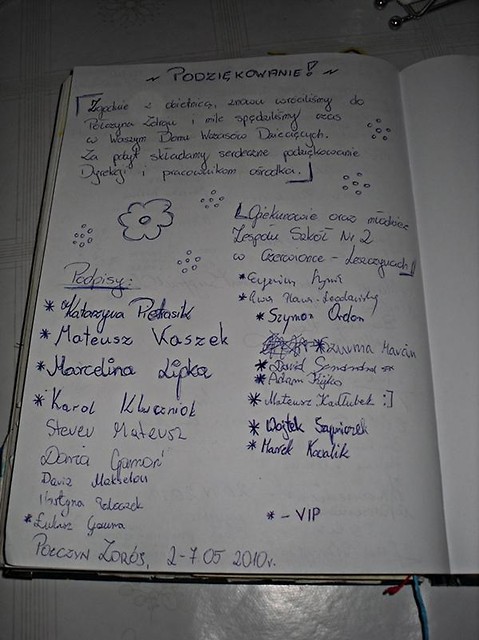 ~ PODZIĘKOWANIE! ~
Zgodnie z obietnicą, znowu wróciliśmy do
Połczyna Zdroju i mile spędziliśmy czas
w Waszym Domu Wczasów Dziecięcych.
Za pobyt składamy serdeczne podziękowanie
Dyrekcji i pracownikom ośrodka.
Opiekunowie oraz młodzież
Zespołu Szkół Nr 2
w Czerwionce - Leszczynach!
Podpisy:
* Katarzyna Pietrasik
* Mateusz Kaszek
* Marcelina Lipka
* Karol
Steven Mateusz
Daria Gamoń
Dawid
* Łukasz
* Eugeniusz
* Ewa
* Szymon Ordon
* Zuwma Marcin
* Dawid
* Adam
* Mateusz Kałłubek :]
* Wojtek
* Marek Kowalik
* - VIP
POŁCZYN ZDRÓJ, 2-7 05 2010r.